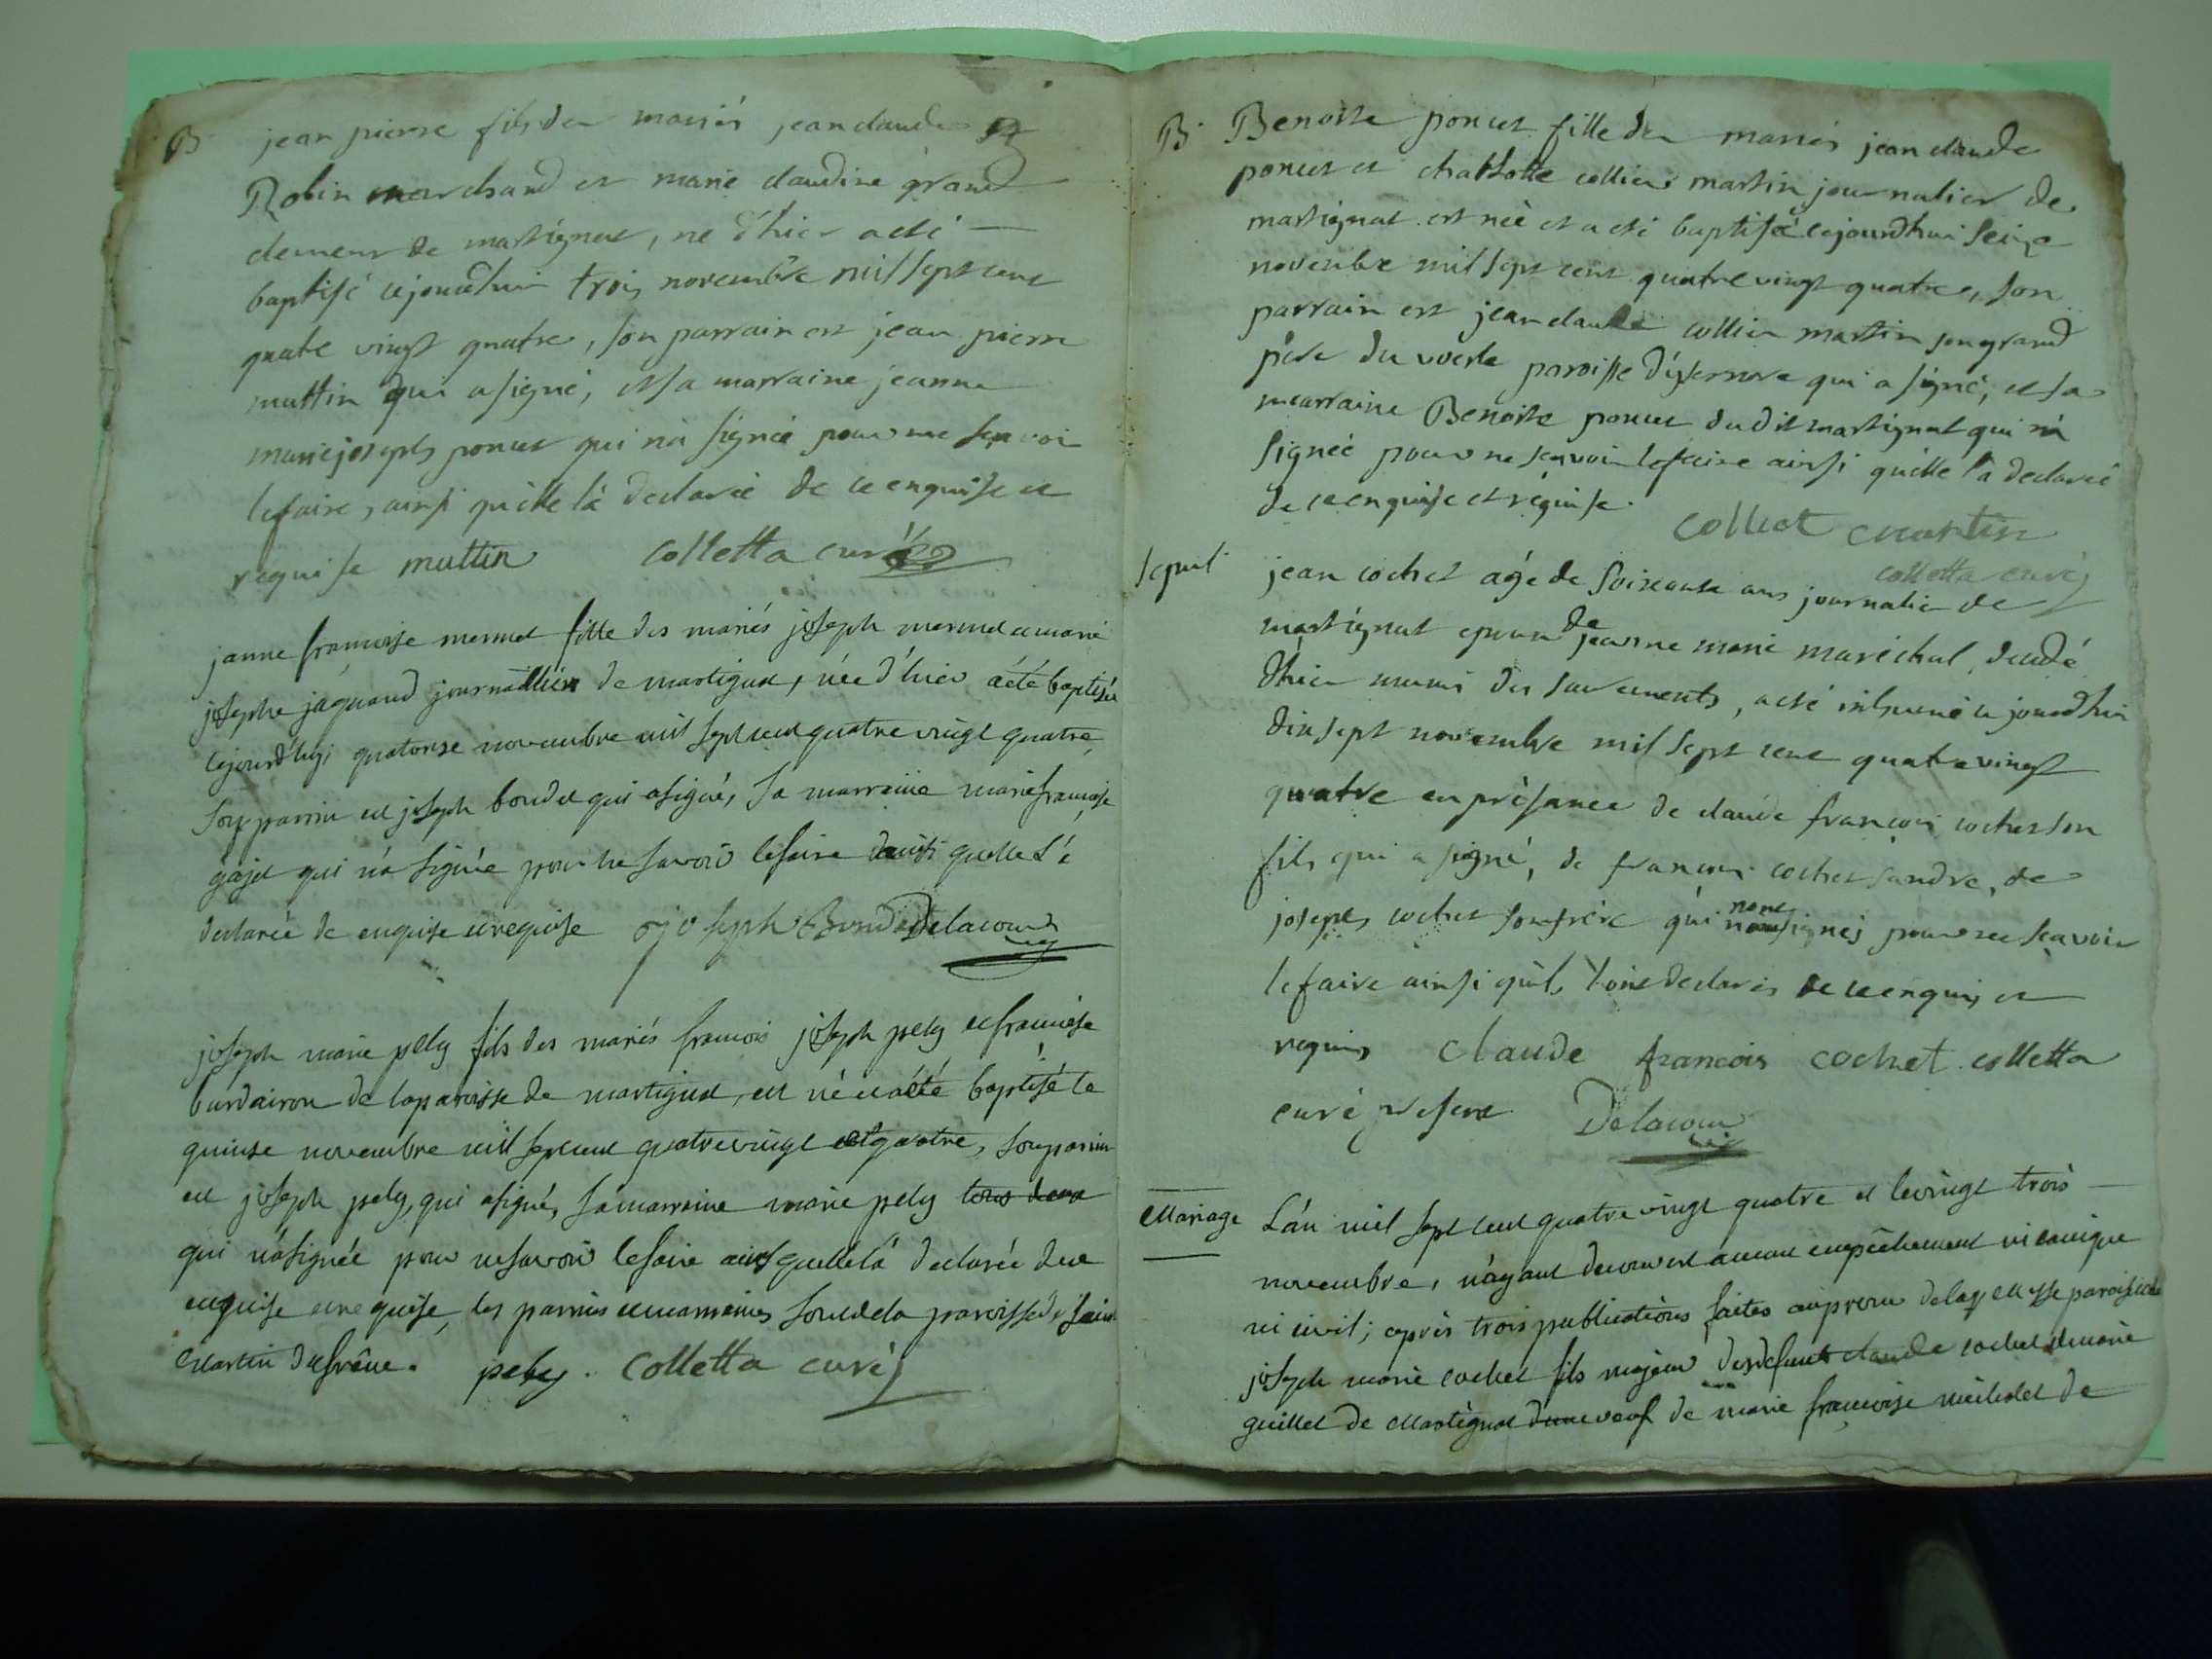 B jean pierre fils des mariés jean claude
Robin marchand et marie claudine grand
clement de martignat, né d'hier a eté
baptisé cejourdhui trois novembre mil sept cent
quatre vingt quatre, son parrain est jean pierre
muttin qui a signé, et sa marraine jeanne
marie joseph poncet qui n'a signée pour ne scavoir
le faire, ainsi qu'elle l'a declaree de ce enquise et
requise muttin colletta curé
janne francoise mermet fille des mariés joseph mermet et marie
josephe jáquand journallier de martignat, née d'hier a été baptisée
cejourd'huy quatorse novembre mil sept cent quatre vingt quatre,
son parrin est joseph bondet qui a signé, sa marraine marie francoise
gajet qui n'a signée pour ne savoir le faire ainsi quelle l'a
declarée de enquise et requise joseph Bondet Delacour
joseph marie pely fils des mariés francois joseph pely et francoise
burdairon de la paroisse de martignat, est né et a été baptisé le
quinse novembre mil sept cent quatre vingt et quatre, son parrin
est joseph pely, qui a signé, sa marraine marie pely tous deux
qui n'a signée pour ne savoir le faire ainsi quelle l'a declarée de ce
enquise et requise, les parrins et marraines sont de la paroisse de saint
Martin du frêne. pely. Colletta curé
B Benoite poncet fille des mariés jean claude
poncet et charlotte collier martin journalier de
martignat est née et a eté baptisée cejourdhui seize
novembre mil sept cent quatre vingt quatre, son
parrain est jean claude collier martin son grand
père du voerle paroisse d'izernore qui a signé, et sa
marraine Benoite poncet dudit martignat qui n'a
signée pour ne scavoir le faire ainsi qu'elle l'a declareé
de ce enquise et requise. Colliet martin
colletta curé
sepult jean cochet agé de soixante ans journalier de
martignat epoux de jeanne marie maréchal, decedé
d'hier muni des sacrements, a eté inhumé ce jourdhui
dix sept novembre mil sept cent quatre vingt
quatre en présence de claude francois cochet son
fils qui a signé, de francois cochet gendre, de
joseph cochet son frère qui nont signés pour ne scavoir
le faire ainsi qu'ils l'ont declarés de ce enquis et
requis Claude francois cochet colletta
curé Delacour
Mariage L'an mil sept cent quatre vingt quatre et le vingt trois
novembre, n'ayant decouvert aucun empêchement ni canique
ni civil; après trois publications faites au prone de la messe paroissiale
joseph marie cochet fils majeur des defunts claude cochet et marie
guillet de Martignat veuf de marie francoise de